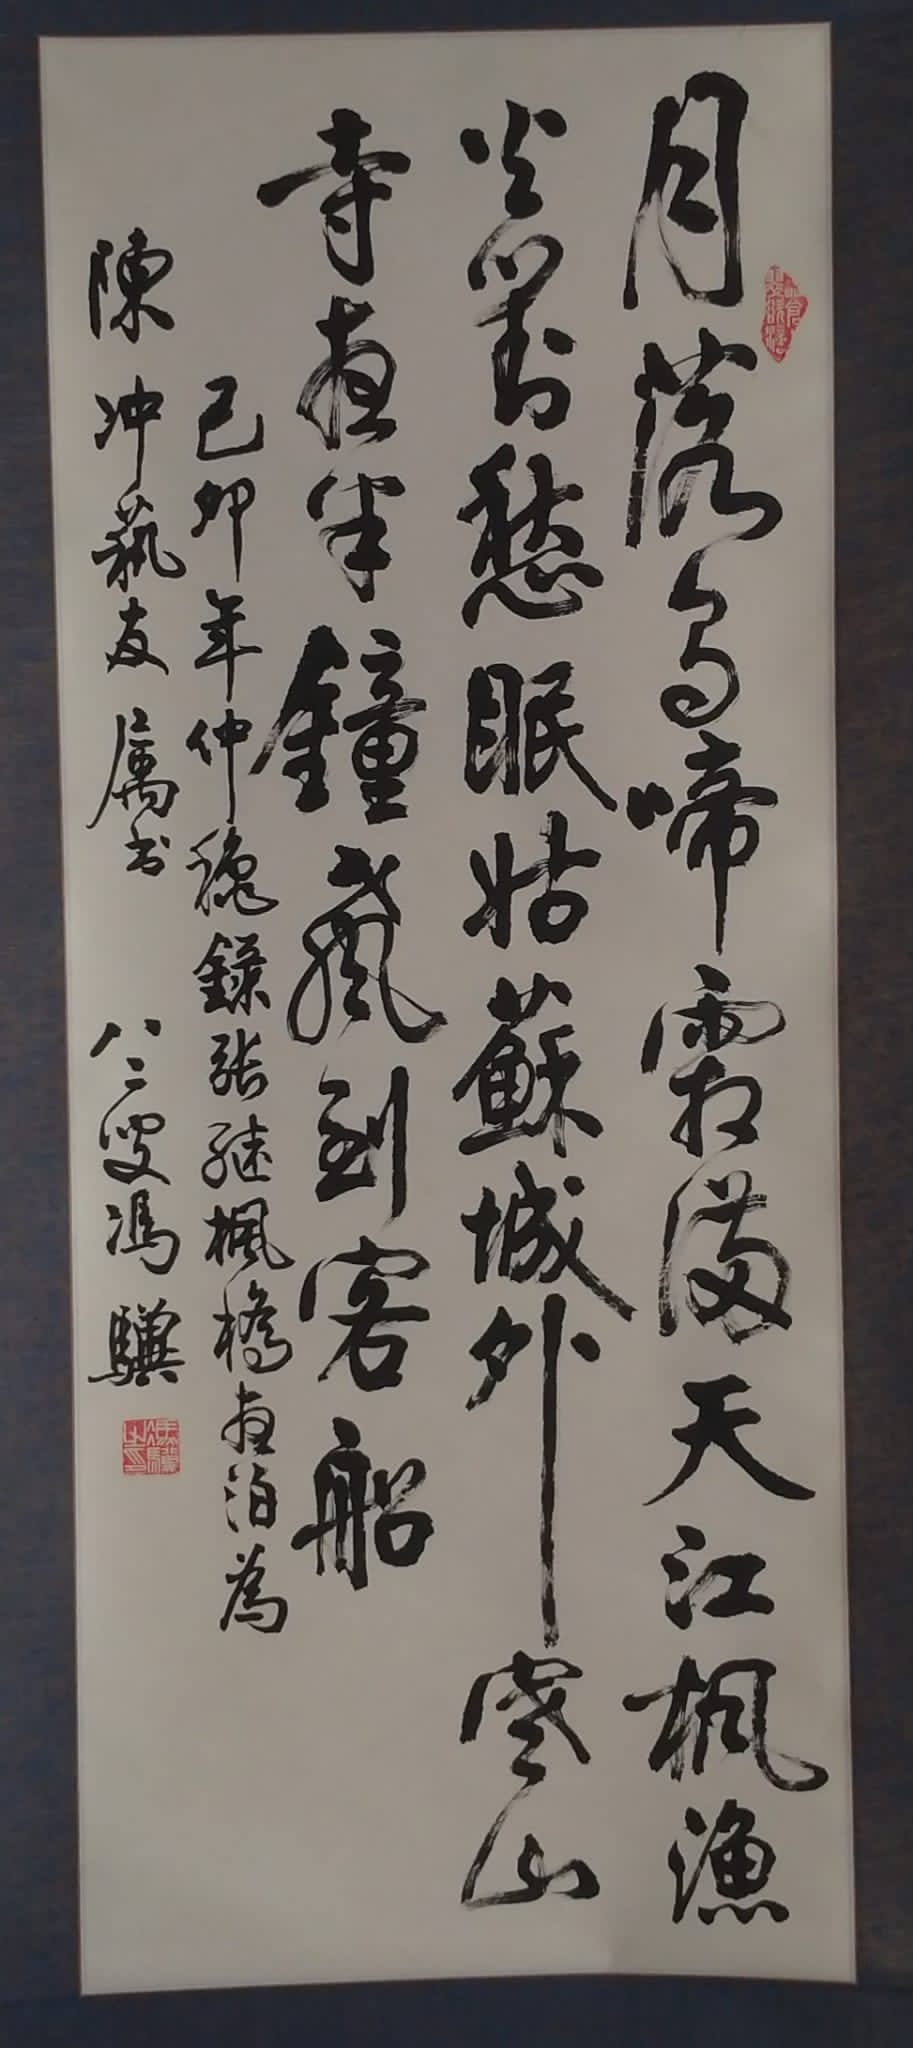 月落烏啼霜滿天江楓漁
火對愁眠姑蘇城外寒山
寺夜半鐘聲到客船
己卯年仲穐錄張繼楓橋夜泊為
陳冲藝友屬書 八二叟馮驥